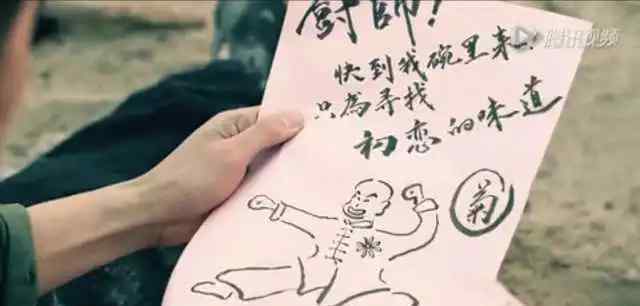 厨師!
快到我碗里来!
只為寻找
初恋的味道
菊
腾讯视频